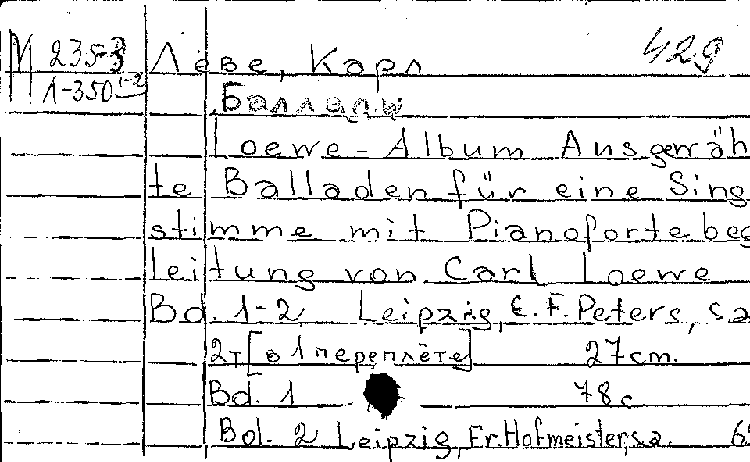 М 2353 Лёве, Карл 429
1-350 1-2
Баллады
Loewe-Album Ausgewäh
te Balladen für eine Sing
stimme mit Pianofortebeg
leitung von Carl Loewe
Bd. 1-2 Leipzig, C. F. Peters, s.a
2т [в 1 переплёте] 27cm.
Bd. 1 78с
Bd. 2 Leipzig, Fr. Hofmeister, s.a.